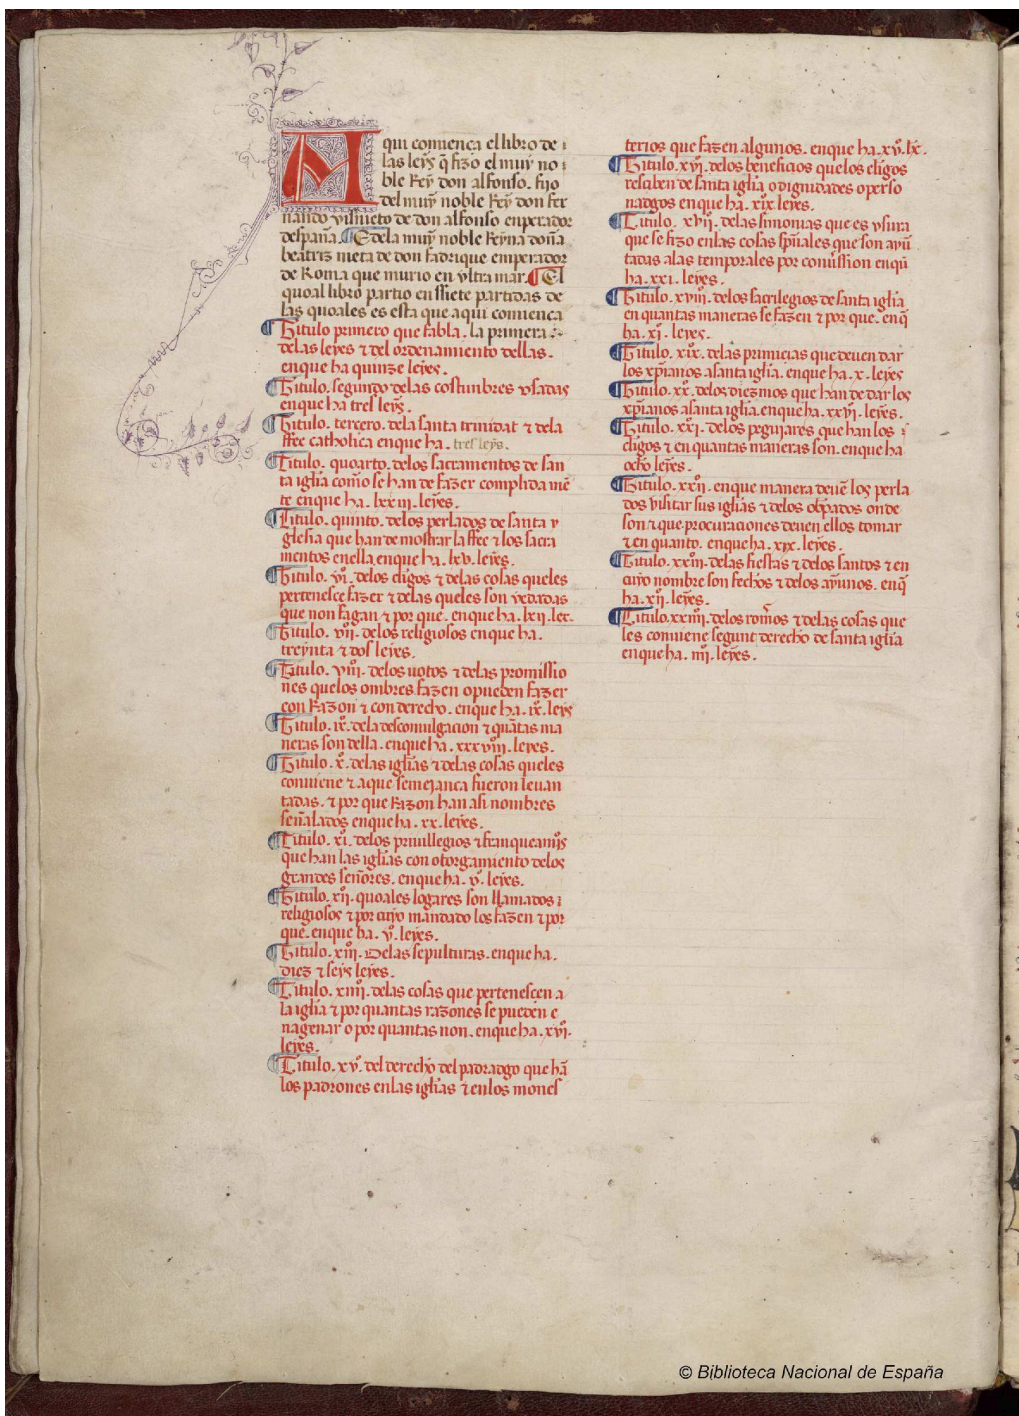 Aqui comiença el libro de
las leyes q̃ fizo el muy no
ble Rey don alfonso. fijo
del muy noble Rey don fer
nando visnieto de don alfonso enperador
despaña. ¶ E dela muy noble Reyna doña
beatriz nieta de don fadrique emperador
de Roma que murio en vltra mar. ¶ El
quoal libro partio en ssiete partidas de
las quoales es esta que aqui comiença
¶ Titulo primero que fabla . la primera
delas leyes ⁊ del ordenamiento dellas.
enque ha quinze leyes.
¶ Titulo. segundo delas costunbres vsadas
enque ha tres leyẽs.
¶ Titulo. tercero. dela santa trinidat ⁊ dela
ffee catholica enque ha. tres leyẽs.
¶ Titulo. quoarto. delos sacramentos de san
ta iglia como se han de fazer complida mẽ
te enque ha. lxxiij. leyes.
¶ Titulo. quinto. delos perlados de santa y
glesia que han de mostrar la ffee ⁊ los sacra
mentos enella. enque ha. lxv. leyes.
¶ Titulo. vj. delos cligos ⁊ delas cosas queles
pertenesce fazer ⁊ delas queles son vedadas
que non fagan ⁊ por que. enque ha. lxij. lee.
¶ Titulo. vij. delos religiosos enque ha.
treynta ⁊ dos leyes.
¶ Titulo. viij. delos uotos ⁊ delas promissio
nes quelos ombres fazen o pueden fazer
con Razon ⁊ con derecho. enque ha. ix. leyẽs
¶ Titulo. ix. dela descomulgacion ⁊ quãtas ma
neras son della. enque ha. xxxviij. leyes.
¶ Titulo. x. delas iglias ⁊ delas cosas queles
conuiene ⁊ aque semejança fueron leuan
tadas. ⁊ por que Razon han asi nombres
señalados enque ha. xx. leyes.
¶ Titulo. xi. delos priuillegios ⁊ franqueamis
que han las iglias con otorgamiento delos
grandes señores. enque ha. v. leyes.
¶ Titulo. xij. quoales logares son llamados
religiosos ⁊ por cuyo mandado los fazen ⁊ por
que. enque ha. v. leyes.
¶ Titulo. xiij. Delas sepulturas. enque ha.
diez ⁊ seys leyes.
¶ Titulo. xiiij. delas cosas que pertenescen a
la iglia ⁊ por quantas razones se pueden e
nagenar o por quantas non. enque ha. xvj.
leyes.
¶ Titulo. xv. del derecho del padradgo que hã
los padrones enlas iglias ⁊ enlos mones
terios que fazen algunos. enque ha. xv. lx.
¶ Titulo. xvj. delos beneficios quelos cligos
resciben de santa iglia o dignidades o perso
nadgos enque ha. xix leyes.
¶ Titulo. xvij. delas simonias que es vsura
que se fizo enlas cosas spũales que son ayũ
tadas alas temporales por comission enqũ
ha. xxi. leyes.
¶ Titulo. xviij. delos sacrilegios de santa iglia
en quantas maneras se fazen ⁊ por que. enq̃
ha. xj. leyes.
¶ Titulo. xix. delas primicias que deuen dar
los xp̃ianos a santa iglia. enque ha. x. leyes
¶ Titulo. xx. delos diezmos que han de dar los
xp̃ianos a santa iglia. enque ha. xxvj. leyes.
¶ Titulo. xxi. delos pegujares que han los
cligos ⁊ en quantas maneras son. enque ha
ocho leyes.
¶ Titulo. xxij. enque manera deuẽ los perla
dos visitar sus iglias ⁊ delos obpados onde
son ⁊ que procuraciones deuen ellos tomar
⁊ en quanto. enque ha. xix. leyes.
¶ Titulo. xxiij. delas fiestas ⁊ delos santos ⁊ en
cuyo nombre son fechos ⁊ delos ayunos. enq̃
ha. xij. leyes.
¶ Titulo. xxiiij. delos romos ⁊ delas cosas que
les conuiene segunt derecho de santa iglia
enque ha. iiij. leyes.
© Biblioteca Nacional de España